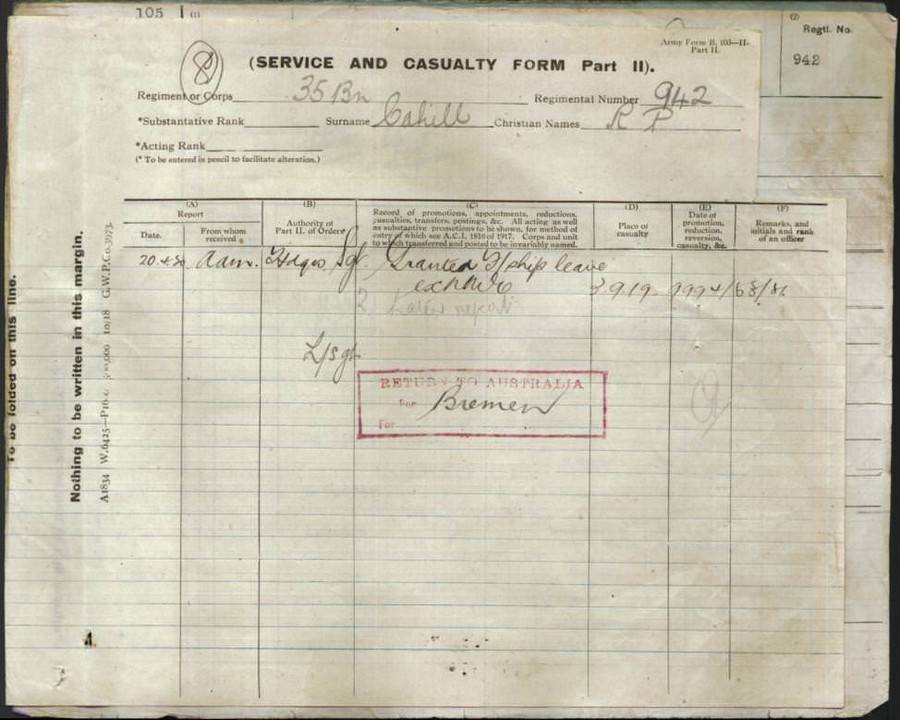 105 1 (1)
(2)
Regtl. No.
942
Army Form B. 103—II.
Part II.
8
(SERVICE AND CASUALTY FORM Part II).
Regiment or Corps 35 Bn Regimental Number 942
*Substantative Rank Surname Cahill Christian Names R P
*Acting Rank
(* To be entered in pencil to facilitate alteration.)
(A) (B) (C) (D) (E) (F)
Report
Date.
From whom received
Authority of Part II. of Orders
Record of promotions, appointments, reductions,
casualties, transfers, postings, &c. All acting as well
as substantive promotions to be shown, for method of
entry of which see A.C.I. 1816 of 1917. Corps and unit
to which transferred and posted to be invariably named.
Place of casualty
Date of promotion, reduction, reversion, casualty, &c.
Remarks, and initials and rank of an officer
20.4.20 Adm. Hdqrs Sgt. Granted leave
3 9 19
L/Sgt
RETURN TO AUSTRALIA
Per Bremen
For
To be folded on this line.
Nothing to be written in this margin.
10/18 G.W.P.Co.3973.